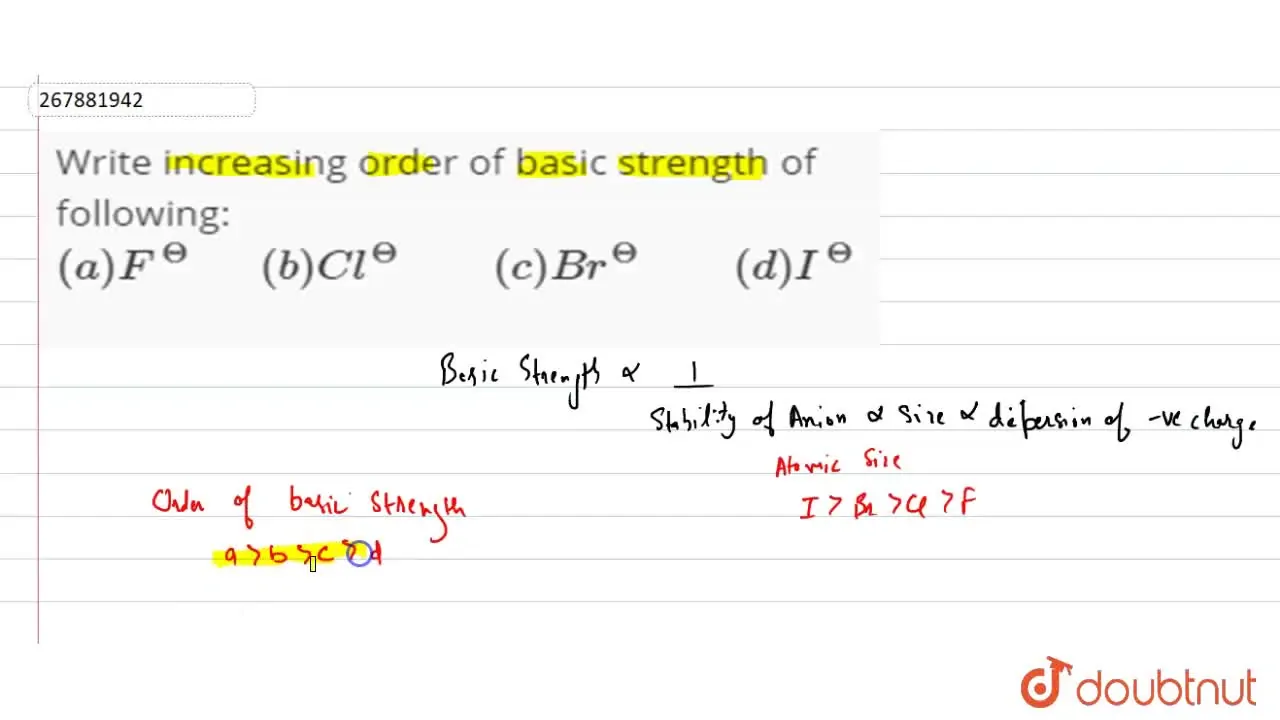 267881942
Write increasing order of basic strength of
following:
(a)F^⊖ (b)Cl^⊖ (c)Br^⊖ (d)I^⊖
Basic Strength ∝ 1
Stability of Anion ∝ Size ∝ dispersion of -ve charge
Atomic Size
I > Br > Cl > F
Order of basic Strength
a > b > c > d
doubtnut